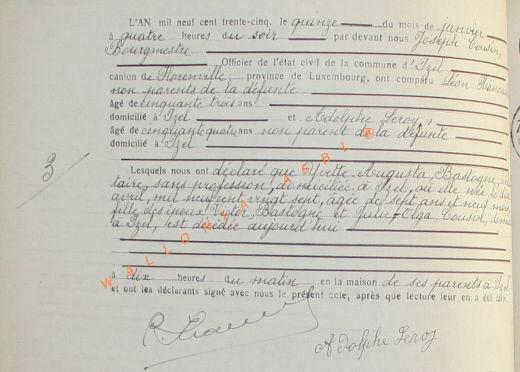 L'AN mil neuf cent trente-cinq, le quinze du mois de janvier
à quatre heures du soir par devant nous Joseph Cousin,
Bourgmestre
Officier de l'état civil de la commune d'Izel
canton de Florenville, province de Luxembourg, ont comparu Léon
non parents de la défunte
âgé de cinquante trois ans
domicilié à Izel et Adolphe Leroy,
âgé de cinquante quatre ans non parent de la défunte
domicilié à Izel
3
Lesquels nous ont déclaré que Yvette Augusta, Bastogne,
taire, sans profession, domiciliée à Izel, où elle née le
avril, mil neuf cent vingt sept, agée de sept ans et neuf
fille des époux Victor, Bastogne et Julie Olga Cousin,
à Izel, est décédée aujourd'hui
à dix heures du matin en la maison de ses parents à Izel
et ont les déclarants signé avec nous le présent acte, après que lecture leur en a été
Adolphe Leroy
WALLONIA ASBL